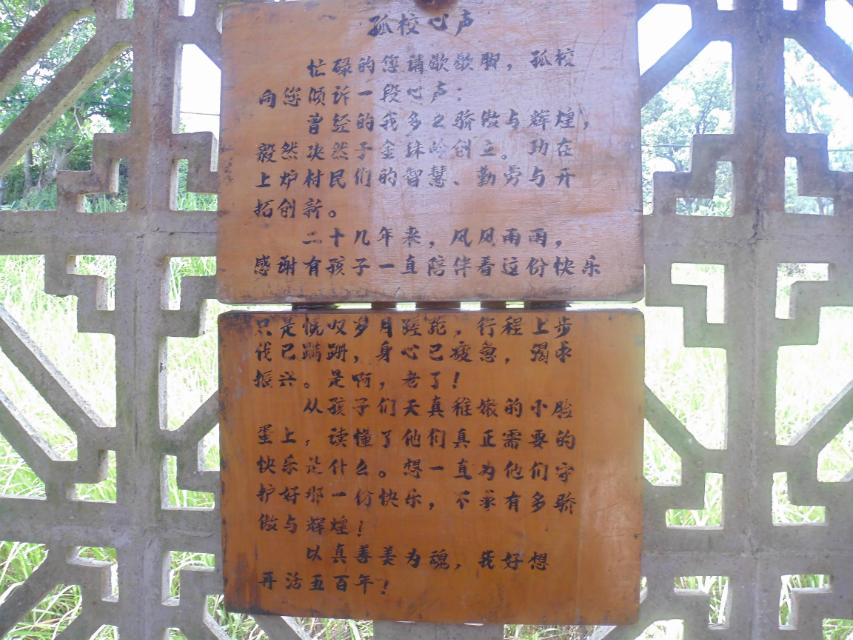 孤校心声
忙碌的您请歇歇脚，孤校
向您倾诉一段心声：
曾经的我多么骄傲与辉煌，
毅然决然于金珠岭创立。功在
上炉村民们的智慧、勤劳与开
拓创新。
二十几年来，风风雨雨，
感谢有孩子一直陪伴看这份快乐
只是慨叹岁月蹉跎，行程上步
伐已蹒跚，身心已疲惫，渴求
振兴。是啊，老了！
从孩子们天真稚嫩的小脸
蛋上，读懂了他们真正需要的
快乐是什么。想一直为他们守
护好那一份快乐，不求有多骄
傲与辉煌！
以真善美为魂，我好想
再活五百年！